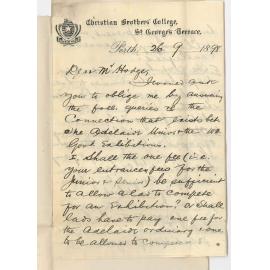 Christian Brothers' College,
St George's Terrace,
Perth, 26 9 1898
Dear Mr Hodges
I would ask
you to oblige me by answering
the foll. queries re the
Connection that exists bet
the Adelaide Univ & the WA
Govt Exhibitions.
1. Shall the one fee (i.e.
your entrance fees for the
Junior & Senior) be sufficient
to allow a lad to compete
for an Exhibition? or shall
lads have to pay one fee for
the Adelaide ordinary & one
to be allowed to compete